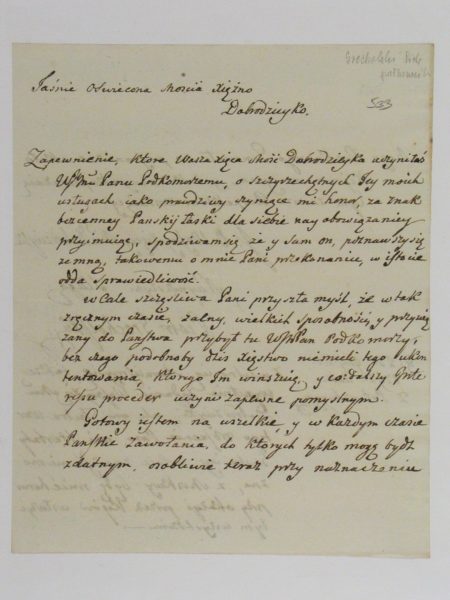 Jaśnie Oświecona Mościa Xiężno
Dobrodzieyko.
Zapewnienie, ktore Wasza Xięca Mość Dobrodzieyka uczyniłaś
Panu Podkomorzemu, o szczyrzechętnych Jey moich
usługach iako prawdziwy czyniące mi honor, za znak
bezcenney Pańskiy łaski dla siebie nay obowiązaniey
przyimuię, spodziwam się że y sam on, poznawszy się
zemną, takowemu o mnie Pani przekonaniu, w istocie
odda sprawiedliwość.
wcale szczęśliwa Pani przyszła myśl, że w tak
zręcznym czasie, zdatny, wielkich sposobności, y przywią
zany do Państwa przybył tu Pan Podkomorzy,
bez czego podobnoby dziś Xięstwo niemieli tego ukon
tentowania, ktorego Im winszuię, y co dalszy Inte
ressu proceder uczyni zapewne pomyślnym.
Gotowy iestem na wszelkie, y w każdym czasie
Pańskie zawołania, do ktorych tylko mogę bydź
zdatnym, osobliwie teraz przy naznaczeniu